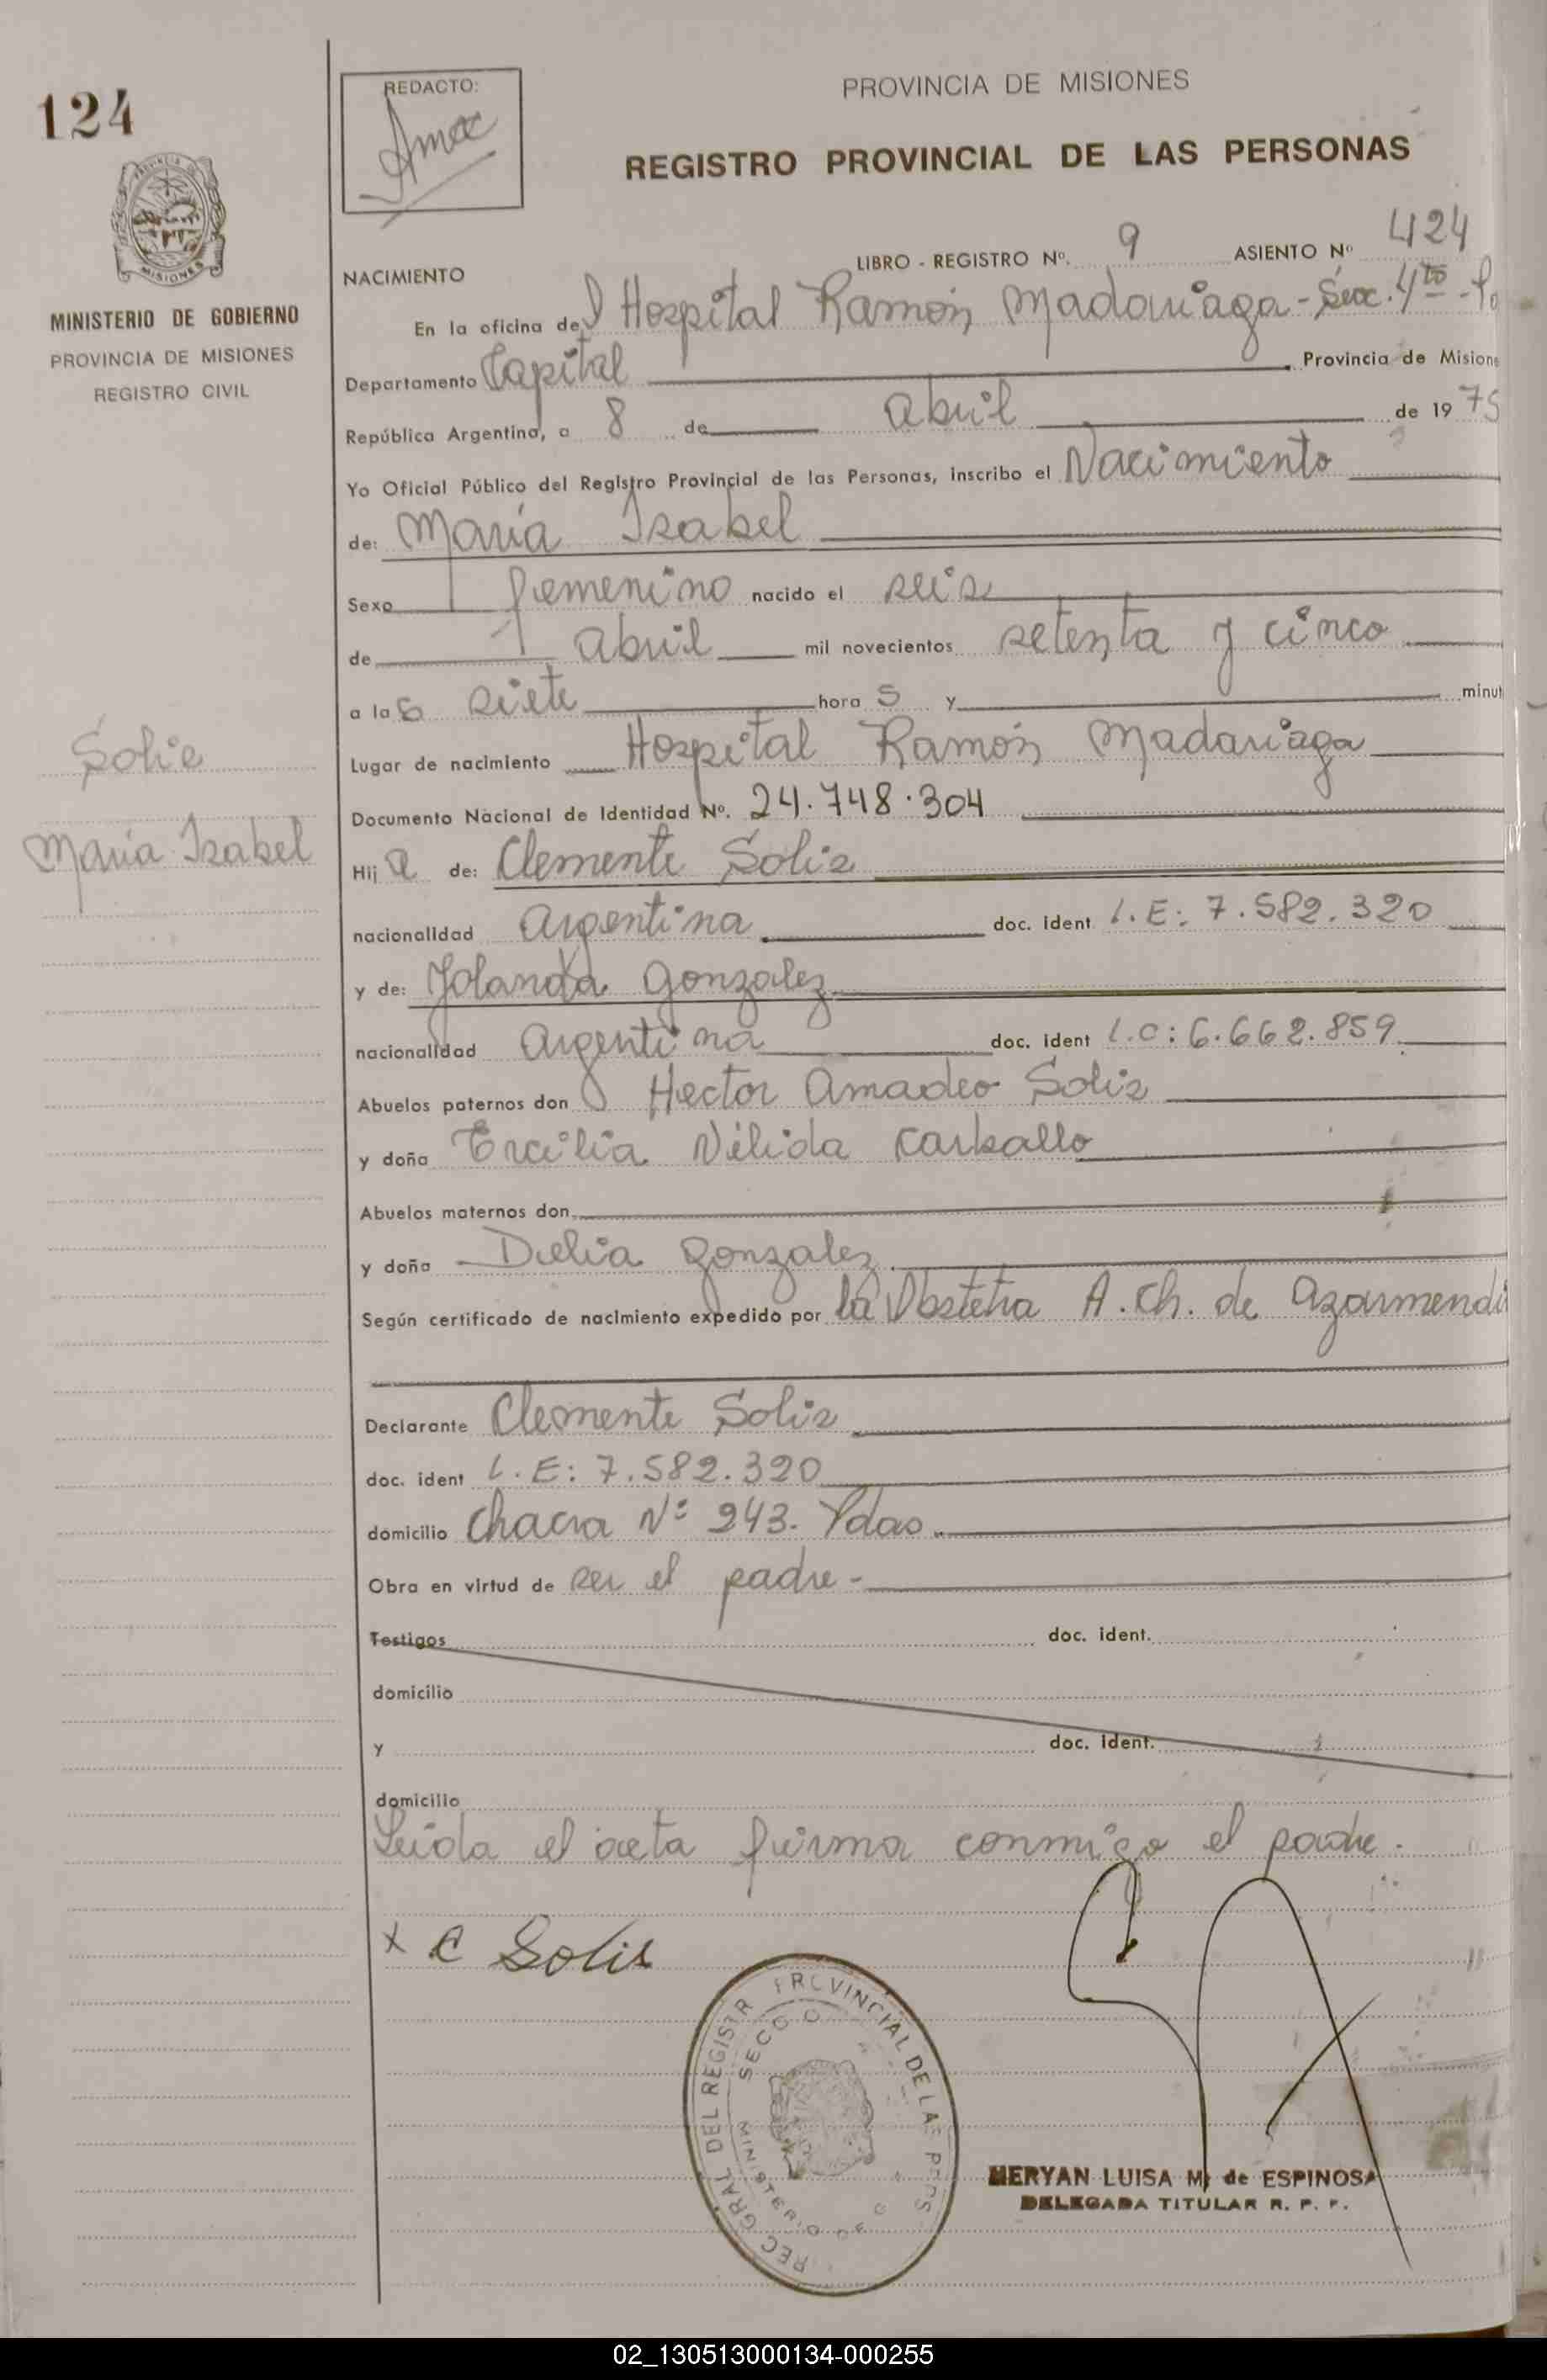 124
REDACTO:
PROVINCIA DE MISIONES
REGISTRO PROVINCIAL DE LAS PERSONAS
MISIONES
MINISTERIO DE GOBIERNO
PROVINCIA DE MISIONES
REGISTRO CIVIL
LIBRO - REGISTRO Nº. 9 ASIENTO Nº 424
NACIMIENTO
En la oficina del Hospital Ramón Madariaga - Secc. 4ta - Po
Departamento Capital Provincia de Misione
República Argentina, a 8 de abril de 1975
Yo Oficial Público del Registro Provincial de las Personas, inscribo el Nacimiento
de: María Isabel
Sexo femenino nacido el seis
de abril mil novecientos setenta y cinco
a las siete horas y minut
Lugar de nacimiento Hospital Ramón Madariaga
Documento Nacional de Identidad Nº. 24.748.304
Hija de: Clemente Solis
nacionalidad Argentina doc. ident L.E: 7.582.320
y de: Yolanda Gonzalez
nacionalidad Argentina doc. ident L.C: 6.662.859
Abuelos paternos don Hector Amadeo Solis
y doña Ercilia Nélida Carballo
Abuelos maternos don
y doña Delia Gonzalez
Según certificado de nacimiento expedido por la Obstetra A. Ch. de Azarmendi
Declarante Clemente Solis
doc. ident L.E: 7.582.320
domicilio Chacra Nº 243. Pdas.
Obra en virtud de ser el padre -
Testigos doc. ident.
domicilio
y doc. ident.
domicilio
Leida el acta firma conmigo el padre.
Solis
María Isabel
x C Solis
REC GRAL DEL REGISTR PROVINCIAL DE LAS PERS
MINISTERIO DE GO
MERYAN LUISA M. de ESPINOSA
DELEGADA TITULAR R. P. P.
02_130513000134-000255